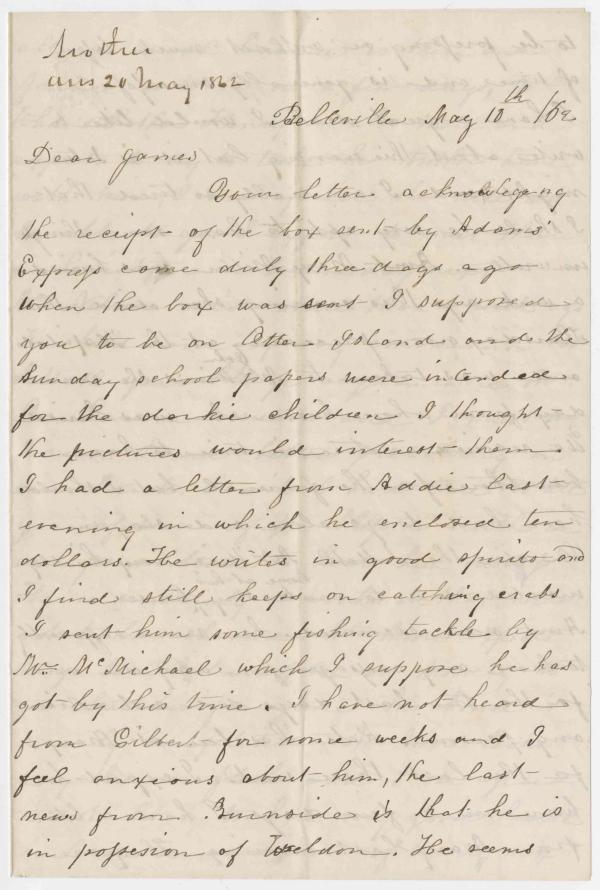 Mother
ans 20 May 1862
Belleville May 10th /62
Dear James
Your letter acknowledgeing
the receipt of the box sent by Adams'
Express came duly three days ago
when the box was sent I supposed
you to be on Otter Island and the
Sunday school papers were intended
for the darkie children I thought
the pictures would interest them
I had a letter from Addie last
evening in which he enclosed ten
dollars. He writes in good spirits and
I find still keeps on catching crabs
I sent him some fishing tackle by
Mr. McMichael which I suppose he has
got by this time. I have not heard
from Gilbert for some weeks and I
feel anxious about him, the last
news from Burnside is that he is
in possesion of Weldon. He seems